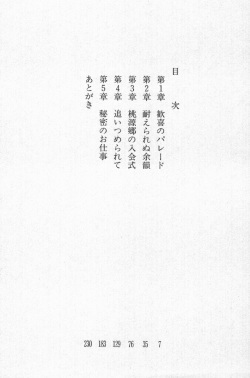 目次
第1章 歓喜のパレード 7
第2章 耐えられぬ余韻 35
第3章 桃源郷の入会式 76
第4章 追いつめられて 129
第5章 秘密のお仕事 183
あとがき 230